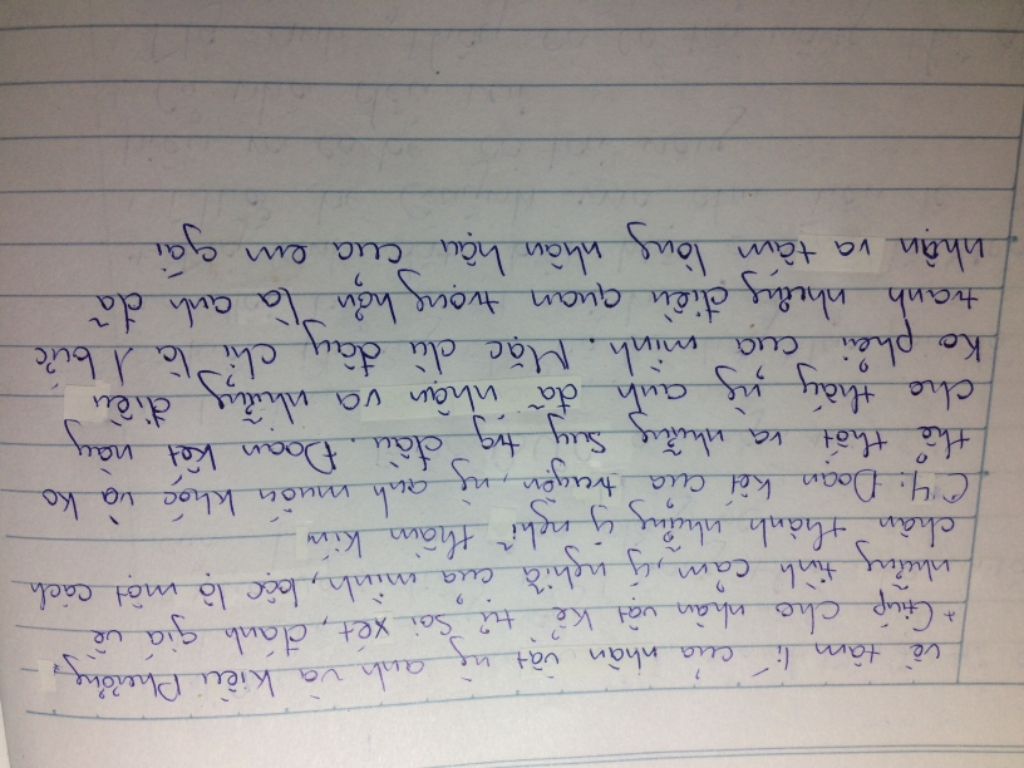 về tâm lí của nhân vật ng anh và Kiều Phương
+ Giúp cho nhân vật kể tự soi xét, đánh giá về
những tình cảm, ý nghĩ của mình, bộc lộ một cách
chân thành những ý nghĩ thầm kín
C4: Đoạn kết của truyện, ng anh muốn khóc và ko
thể thốt ra những suy ng đâu. Đoạn kết này
cho thấy ng anh đã nhận ra những điều
ko phải của mình. Mặc dù đây chỉ là 1 bức
tranh nhưng điều quan trọng hơn là anh đã
nhận ra tấm lòng nhân hậu của em gái